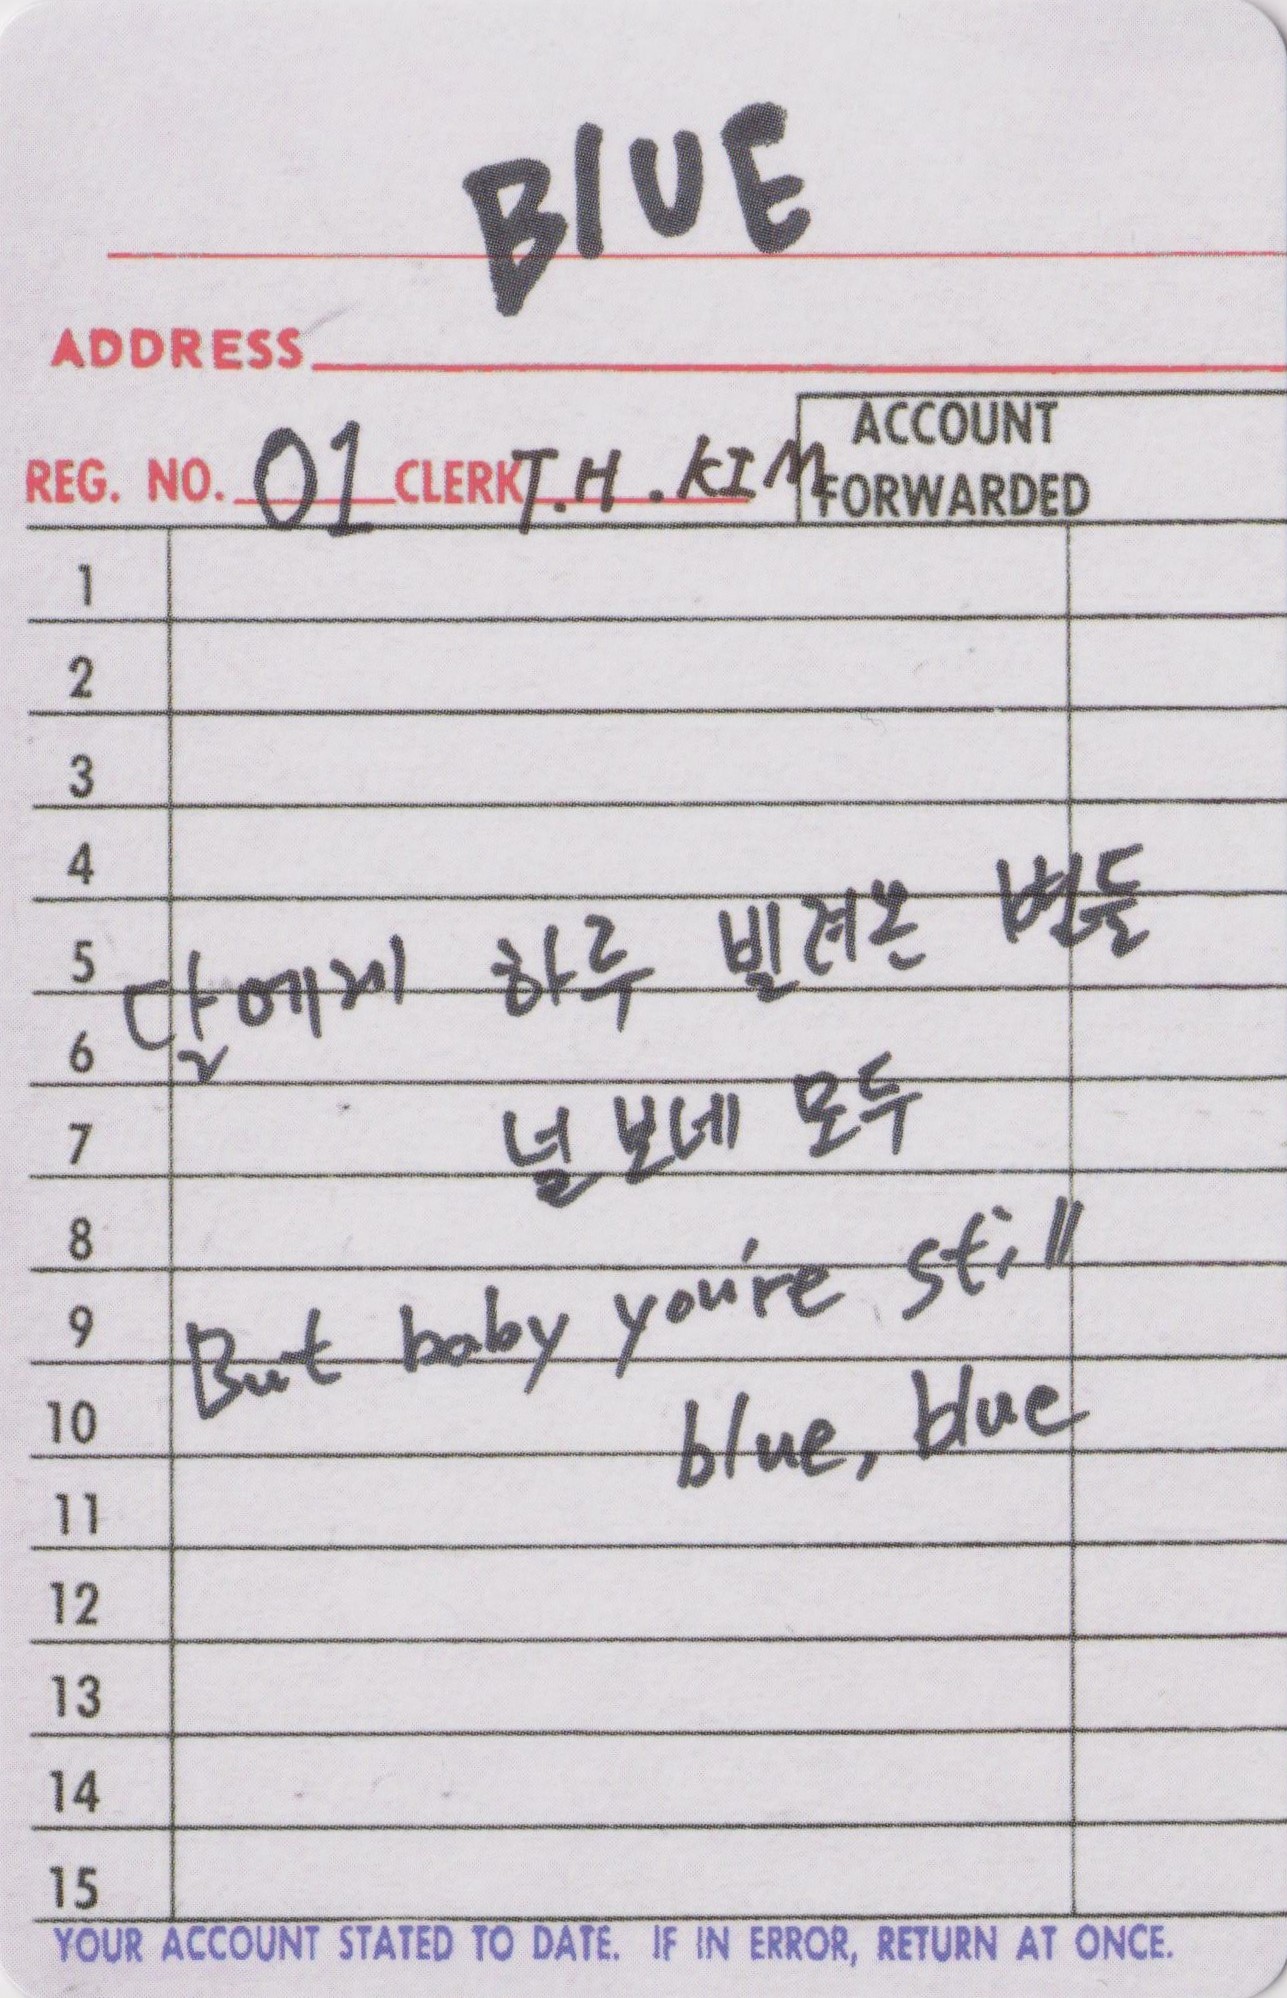 BLUE
ADDRESS
REG. NO. 01 CLERK T.H.KIM
ACCOUNT
FORWARDED
1
2
3
4
5
달에게 하루 빌려온 별들
6
7
널 보네 모두
8
But baby you're still
9
10
blue, blue
11
12
13
14
15
YOUR ACCOUNT STATED TO DATE. IF IN ERROR, RETURN AT ONCE.